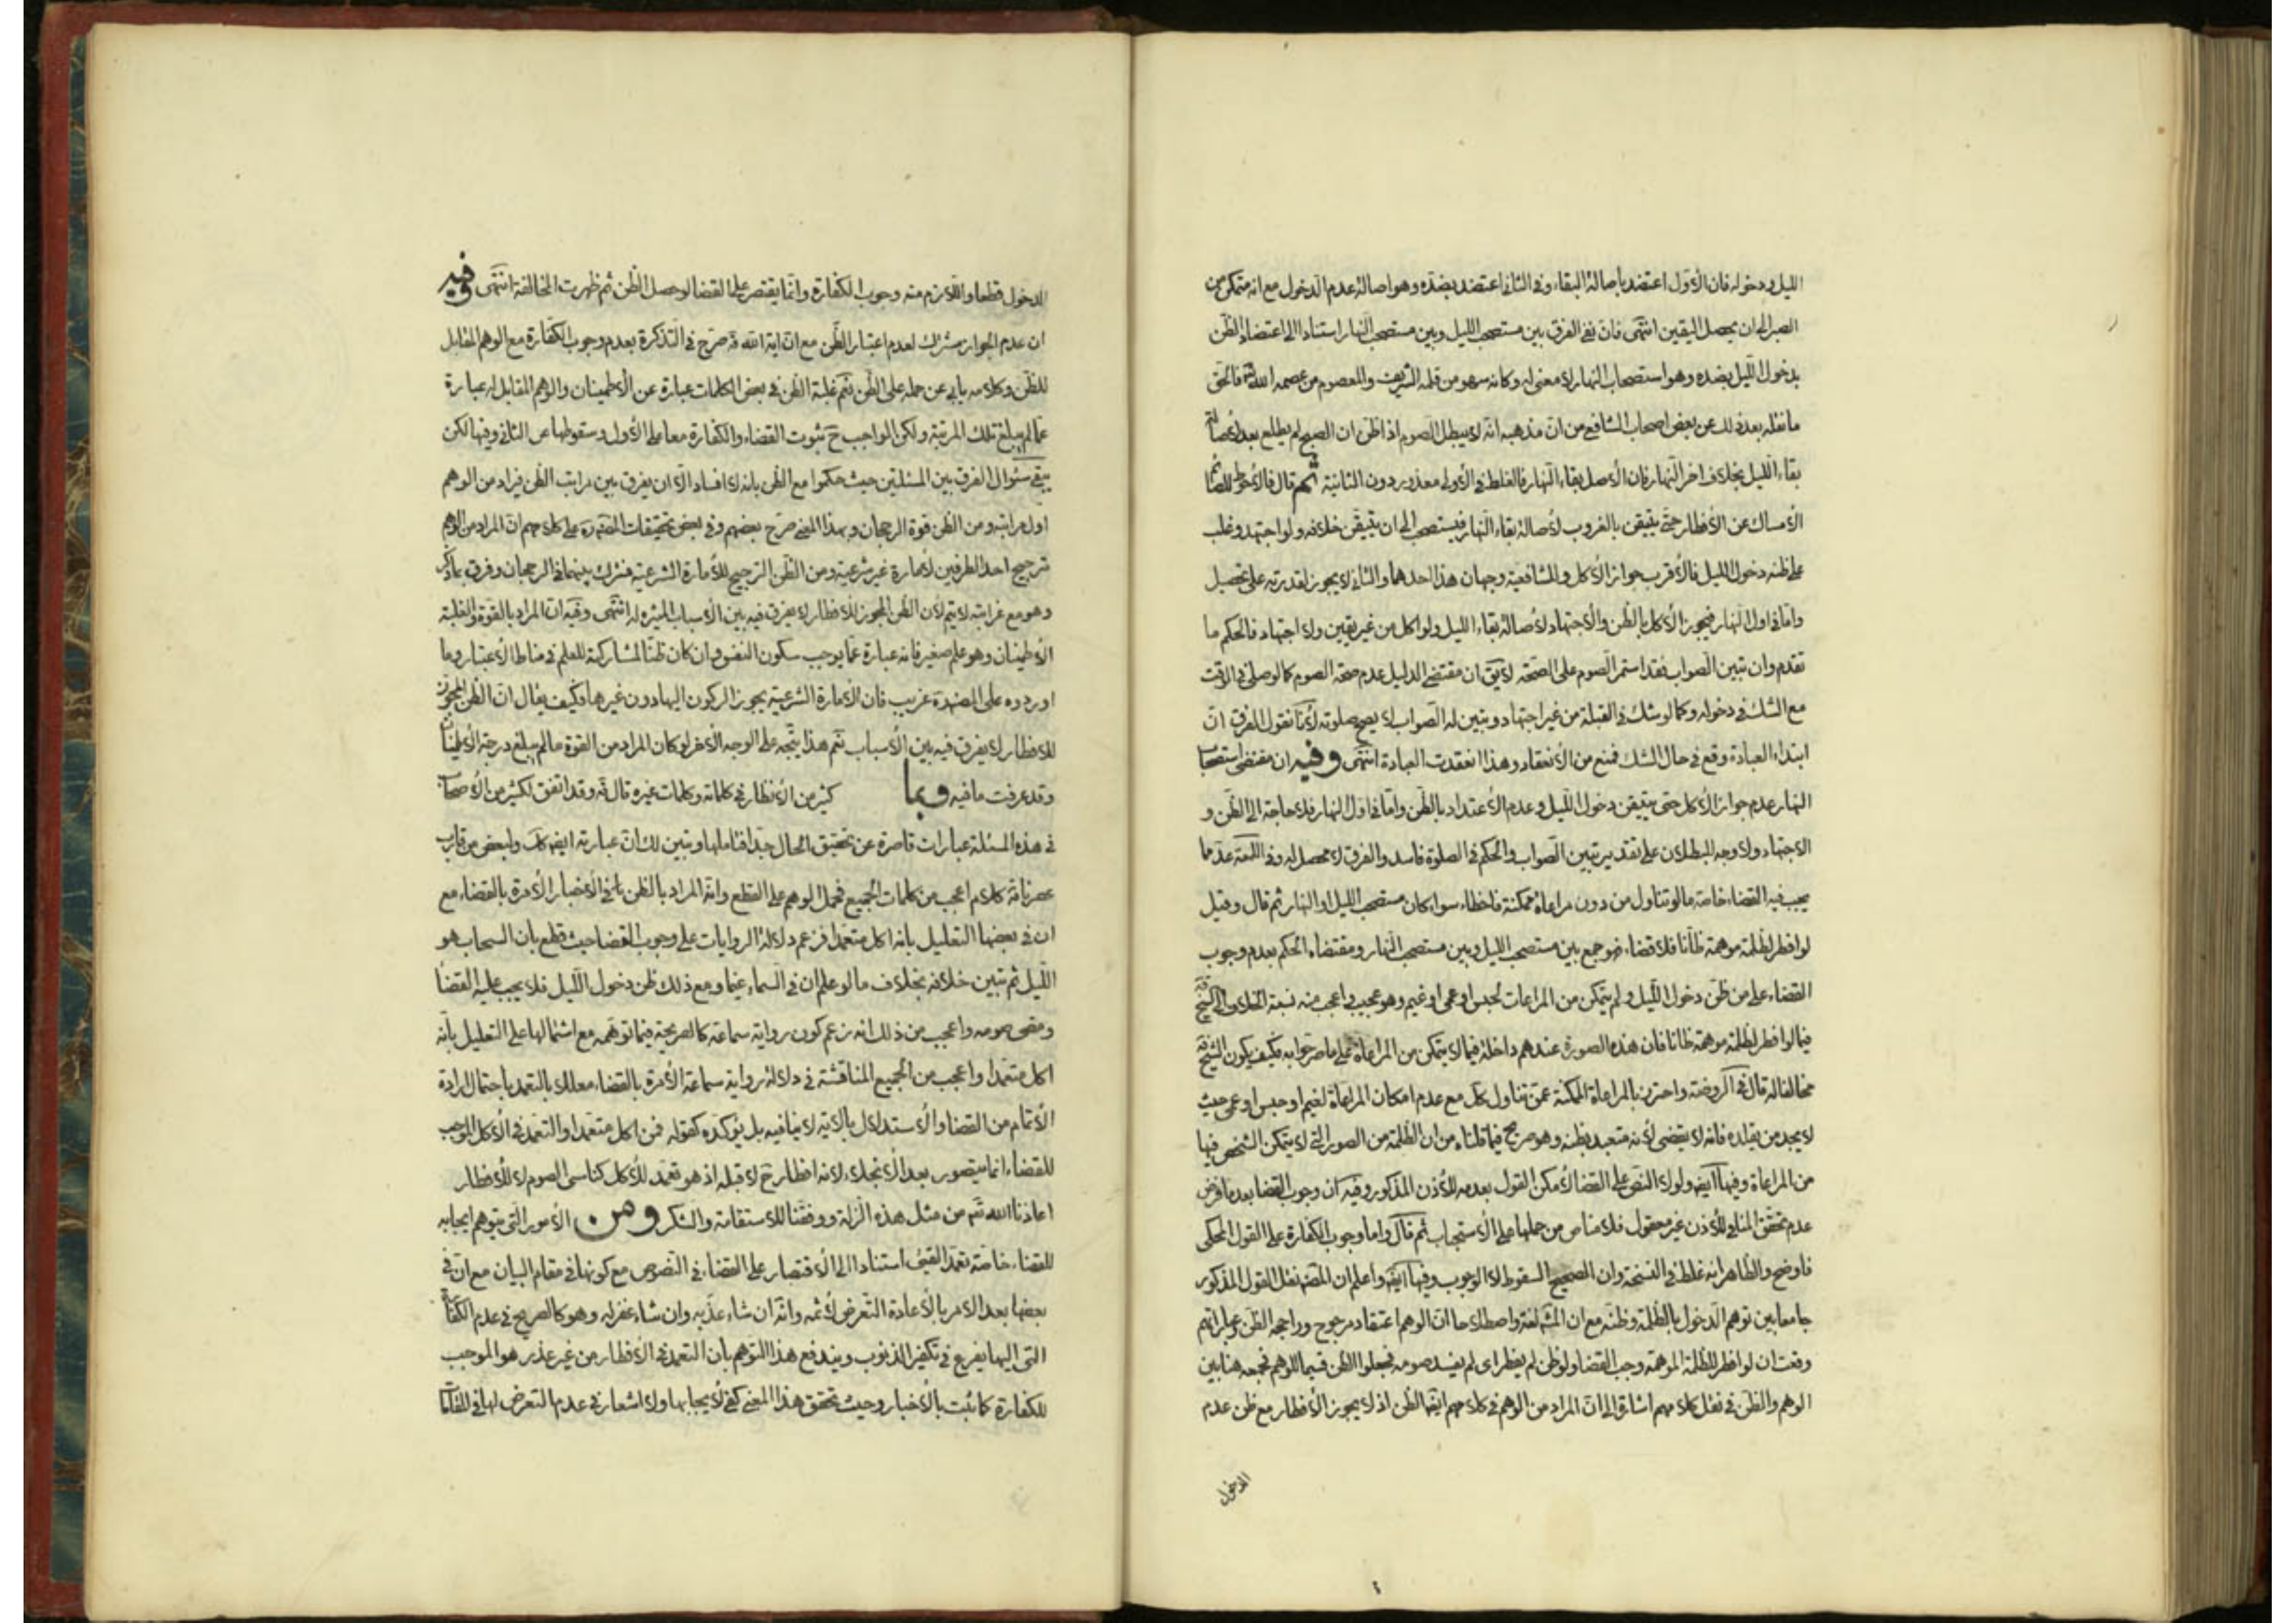 الليل ودخوله فان الأول اعتضد بأصالة البقاء وفي الثاني اعتضد بضده وهو اصالة عدم الدخول مع انه متمكن من
الصبر الى ان يحصل اليقين انتهى فان نفي الفرق بين مستصحب الليل وبين مستصحب النهار استنادا الى اعتضاد الظن
بدخول الليل بضده وهو استصحاب النهار لا معنى له وكانه سهو من قلمه الشريف والمعصوم من عصمه الله تعـ فالحق
ما نقله بعد ذلك عن بعض اصحاب الشافعي من ان مذهبه انه لا يبطل الصوم اذا ظن ان الصبح لم يطلع بعد لأصالة
بقاء الليل بخلاف اخر النهار فان الأصل بقاء النهار فالغلط في الأولى معذور دون الثانية ثم قال فالأحوط للصائم
الأمساك عن الأفطار حتى يتيقن بالغروب لأصالة بقاء النهار فيستصحب الى ان يتيقن خلافه ولو اجتهد وغلب
على ظنه دخول الليل فالأقرب جواز الأكل وللشافعية وجهان هذا احدهما والثاني لا يجوز لقدرته على تحصيل
واما في اول النهار فيجوز الأكل بالظن والأجتهاد لأصالة بقاء الليل ولو اكل من غير يقين ولا اجتهاد فالحكم ما
تقدم وان تبين الصواب فقد استمر الصوم على الصحة لا يق ان مقتضى الدليل عدم صحة الصوم كما لو صلى في الوقت
مع الشك في دخوله وكما لو شك في القبلة من غير اجتهاد وتبين له الصواب لا يصح صلوته لأنا نقول الفرق ان
ابتداء العبادة وقع في حال الشك فمنع من الأنعقاد وهنا انعقدت العبادة انتهى وفيه ان مقتضى استصحاب
النهار عدم جواز الأكل حتى يتيقن دخول الليل وعدم الأعتداد بالظن واما في اول النهار فلا حاجة الى الظن و
الاجتهاد ولا وجه للبطلان على تقدير تبين الصواب والحكم في الصلوة فاسد والفرق لا محصل له وفي اللمعة عد مما
يجب فيه القضاء خاصة ما لو تناول من دون مراعاة ممكنة فاخطاء سواء كان مستصحب الليل او النهار ثم قال وقيل
لو افطر لظلمة موهمة ظانا فلا قضاء فجمع بين مستصحب الليل وبين مستصحب النهار ومقتضاه الحكم بعدم وجوب
القضاء على من ظن دخول الليل ولم يتمكن من المراعات لحبس او عمى او غيم وهو عجيب واعجب منه نسبة الخلاف الى الشيخ قده
فيما لو افطر لظلمة موهمة ظانا فان هذه الصورة عندهم داخلة فيما لا يتمكن من المراعاة على ما صرحوا به فكيف يكون الشيخ قده
مخالفا له قال في الروضة واحترز بالمراعاة الممكنة عمن تناول كك مع عدم امكان المراعاة لغيم او حبس او عمى حيث
لا يجد من يقلده فانه لا يقضى لأنه متعبد بظنه وهو صريح فيما قلناه من ان الظلمة من الصور التي لا يتمكن الشخص فيها
من المراعاة وفيها ايضا ولولا النص على القضاء لأمكن القول بعدمه للأذن المذكور وفيه ان وجوب القضا بعد ما فرض
عدم تحقق المنافي للأذن غير معقول فلا مناص من حملها على الأستحباب ثم قال واما وجوب الكفارة على القول المحكي
فاوضح والظاهر انه غلط في النسخة وان الصحيح السقوط لا الوجوب وفيها ايضا واعلم ان المصنف نقل القول المذكور
جامعا بين توهم الدخول بالظلمة وظنه مع ان المشهور لغة واصطلاحا ان الوهم اعتقاد مرجوح وراجحه الظن وعباراتهم
وقعت ان لو افطر للظلمة الموهمة وجب القضا ولو ظن لم يفطر اى لم يفسد صومه فجعلوا الظن قسيما للوهم فجمعه هنا بين
الوهم والظن في نقل كلامهم اشارة الى ان المراد من الوهم في كلامهم ايضا الظن اذ لا يجوز الأفطار مع ظن عدم
الدخول
الدخول قطعا واللازم منه وجوب الكفارة وانما يقتصر على القضا لو حصل الظن ثم ظهرت المخالفة انتهى وفيه
ان عدم الجواز مشترك لعدم اعتبار الظن مع ان اية الله قد صرح في التذكرة بعدم وجوب الكفارة مع الوهم المقابل
للظن وكلامه يابى عن حمله على الظن نعم غلبة الظن في بعض الكلمات عبارة عن الأطمينان والوهم المقابل له عبارة
عما لم يبلغ تلك المرتبة ولكن الواجب ح ثبوت القضاء والكفارة معا على الأول وسقوطها عن الثاني وفيها لكن
يبقى سئوال الفرق بين المسئلتين حيث حكموا مع الظن بانه لا افساد الا ان يفرق بين مراتب الظن فيراد من الوهم
اول مراتبه ومن الظن قوة الرجحان وبهذا المعنى صرح بعضهم وفي بعض تحقيقات المصنف على كلامهم ان المراد من الوهم
ترجيح احد الطرفين لأمارة غير شرعية ومن الظن الترجيح للأمارة الشرعية فشرك بينهما في الرجحان وفرق بما ذكر
وهو مع غرابته لا يتم لأن الظن المجوز للافطار لا يفرق فيه بين الأسباب المثيرة له انتهى وفيه ان المراد بالقوة والغلبة
الأطمينان وهو علم صغير فانه عبارة عما يوجب سكون النفس وان كان ظنا لمشاركته للعلم في مناط الأعتبار وما
اورده على المصنف غريب فان الأمارة الشرعية يجوز الركون اليها دون غيرها فكيف يقال ان الظن المجوز
للافطار لا يفرق فيه بين الأسباب نعم هذا يتجه على الوجه الآخر لو كان المراد من القوة ما لم يبلغ درجة الأطمينان
وقد عرفت ما فيه وبما كثير من الأنظار في كلماته وكلمات غيره قال قده وقد اتفق لكثير من الأصحاب
في هذه المسئلة عبارات قاصرة عن تحقيق الحال جدا فتاملها وتبين لك ان عبارته ايضا كك ولبعض من قارب
عصرنا قده كلام اعجب من كلمات الجميع فحمل الوهم على القطع وانه المراد بالظن في الأخبار الآمرة بالقضاء مع
ان في بعضها التعليل بانه اكل متعمدا فزعم دلالة الروايات على وجوب القضا حيث قطع بان السحاب هو
الليل ثم تبين خلافه بخلاف ما لو علم ان في السماء غيما ومع ذلك ظن دخول الليل فلا يجب عليه القضا
ومضى صومه واعجب من ذلك انه زعم كون رواية سماعة كالصريحة فيما توهمه مع اشتمالها على التعليل بانه
اكل متعمدا واعجب من الجميع المناقشة في دلالة رواية سماعة الآمرة بالقضاء معللا بالتعمد باحتمال ارادة
الأتمام من القضا والأستدلال بالاية لا ينافيه بل يؤكده كقوله فمن اكل متعمدا والتعمد في الأكل الموجب
للقضاء انما يتصور بعد الأنجلاء لانه افطار ح لا قبله اذ هو تعمد للأكل كناسى الصوم لا للافطار
اعاذنا الله تعـ من مثل هذه الزلة ووفقنا للاستقامة والشكر ومن الأمور التي يتوهم ايجابه
للقضاء خاصة تعمد القيئ استنادا الى الأقتصار على القضاء في النصوص مع كونها في مقام البيان مع ان في
بعضها بعد الامر بالأعادة التعرض لأثمه وانه ان شاء عذبه وان شاء غفر له وهو كالصريح في عدم الكفارة
التى اليها يفزع في تكفير الذنوب ويندفع هذا التوهم بان التعمد في الأفطار من غير عذر هو الموجب
للكفارة كما ثبت بالأخبار وحيث تحقق هذا المعنى كفى لأيجابها ولا اشعار في عدم التعرض لها في المقامات